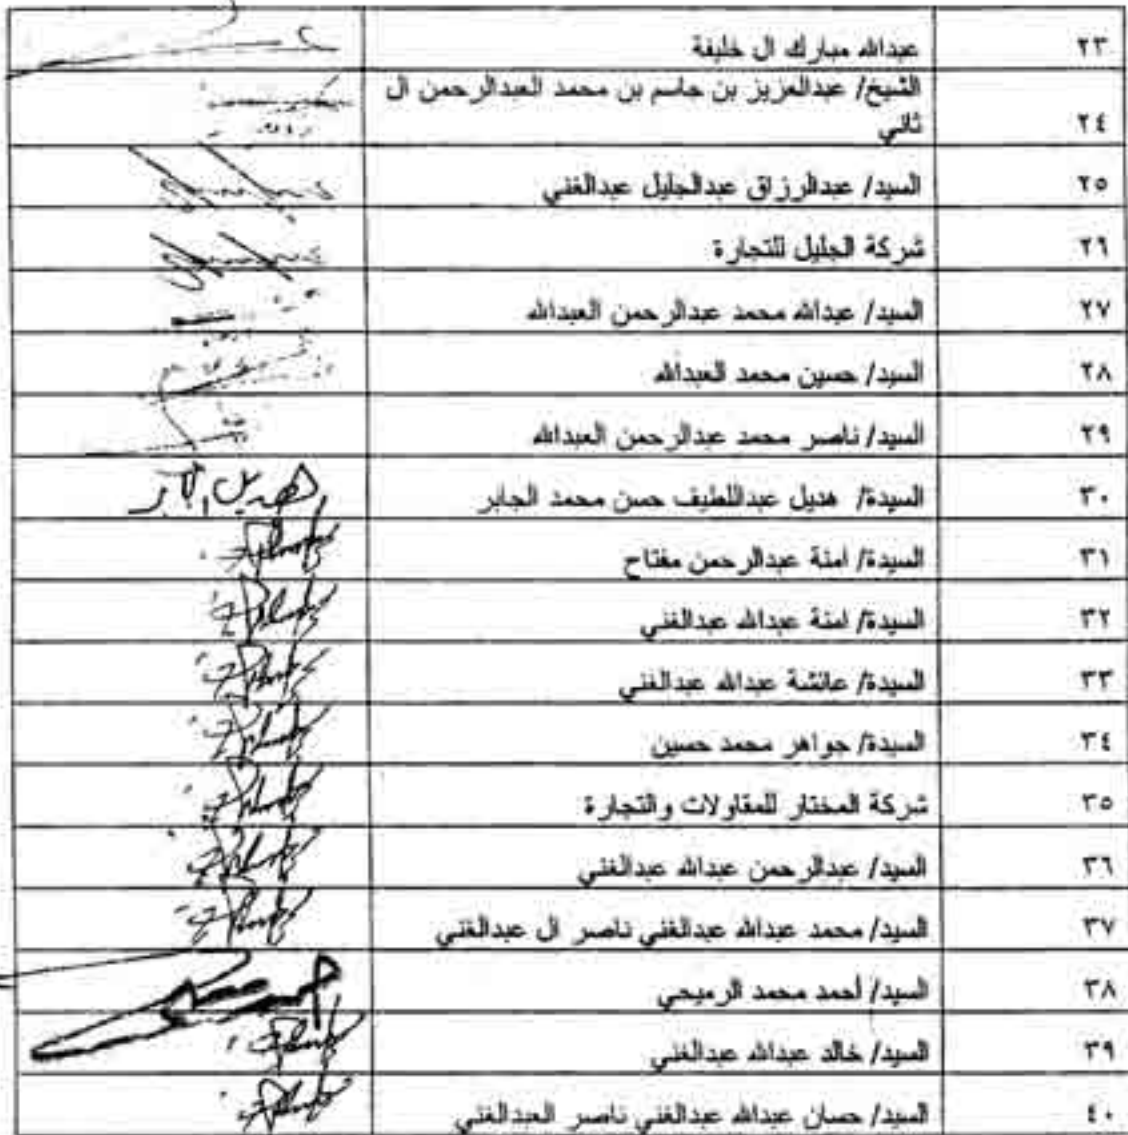 ٢٣ عبدالله مبارك ال خليفة
الشيخ/ عبدالعزيز بن جاسم بن محمد العبدالرحمن ال
٢٤ ثاني
٢٥ السيد/ عبدالرزاق عبدالجليل عبدالغني
٢٦ شركة الجليل للتجارة
٢٧ السيد/ عبدالله محمد عبدالرحمن العبدالله
٢٨ السيد/ حسين محمد العبدالله
٢٩ السيد/ ناصر محمد عبدالرحمن العبدالله
٣٠ السيدة/ هديل عبداللطيف حسن محمد الجابر هديل الجابر
٣١ السيدة/ امنة عبدالرحمن مفتاح
٣٢ السيدة/ امنة عبدالله عبدالغني
٣٣ السيدة/ عائشة عبدالله عبدالغني
٣٤ السيدة/ جواهر محمد حسين
٣٥ شركة المختار للمقاولات والتجارة
٣٦ السيد/ عبدالرحمن عبدالله عبدالغني
٣٧ السيد/ محمد عبدالله عبدالغني ناصر ال عبدالغني
٣٨ السيد/ أحمد محمد الرميحي
٣٩ السيد/ خالد عبدالله عبدالغني
٤٠ السيد/ حسان عبدالله عبدالغني ناصر العبدالغني